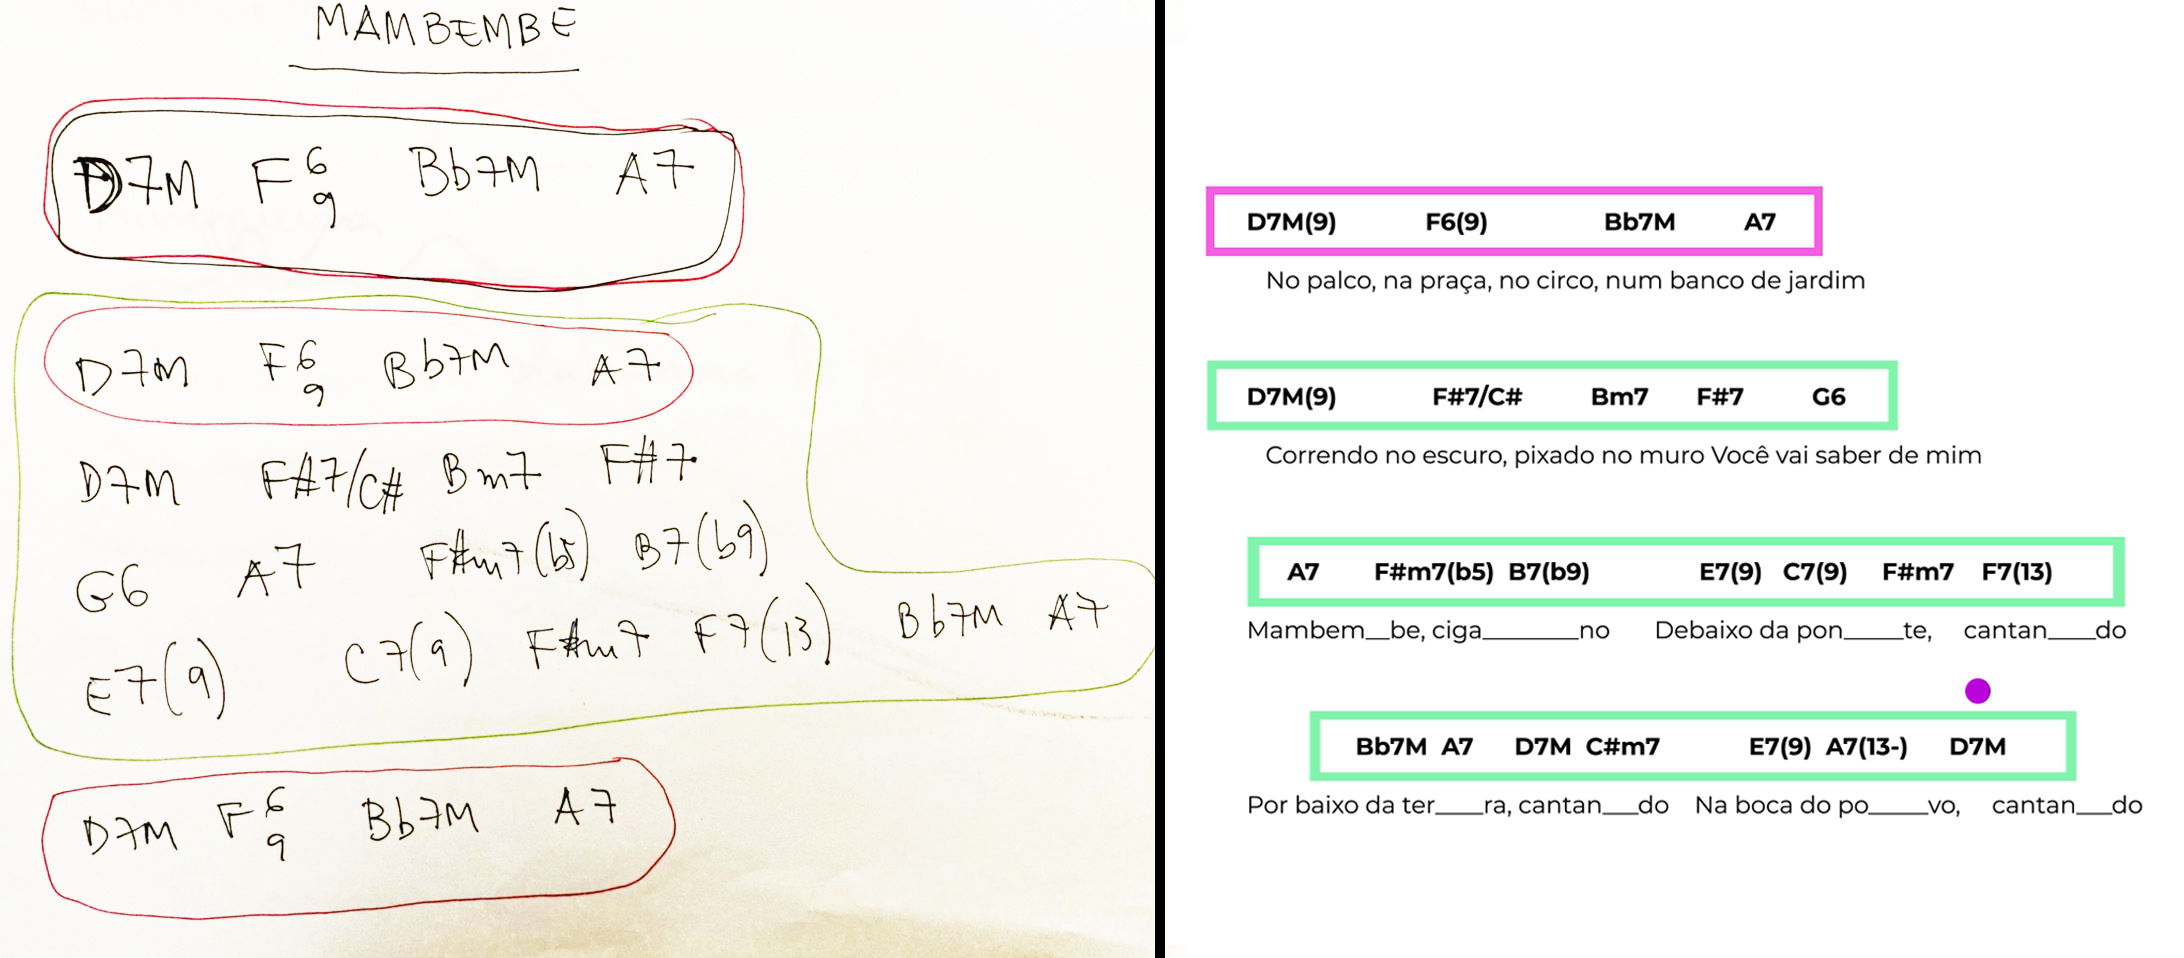 MAMBEMBE
D7M F6/9 Bb7M A7
D7M F6/9 Bb7M A7
D7M F#7/C# Bm7 F#7
G6 A7 F#m7(b5) B7(b9)
E7(9) C7(9) F#m7 F7(13) Bb7M A7
D7M F6/9 Bb7M A7
D7M(9) F6(9) Bb7M A7
No palco, na praça, no circo, num banco de jardim
D7M(9) F#7/C# Bm7 F#7 G6
Correndo no escuro, pixado no muro Você vai saber de mim
A7 F#m7(b5) B7(b9) E7(9) C7(9) F#m7 F7(13)
Mambem__be, ciga________no Debaixo da pon_____te, cantan____do
Bb7M A7 D7M C#m7 E7(9) A7(13-) D7M
Por baixo da ter____ra, cantan___do Na boca do po_____vo, cantan___do